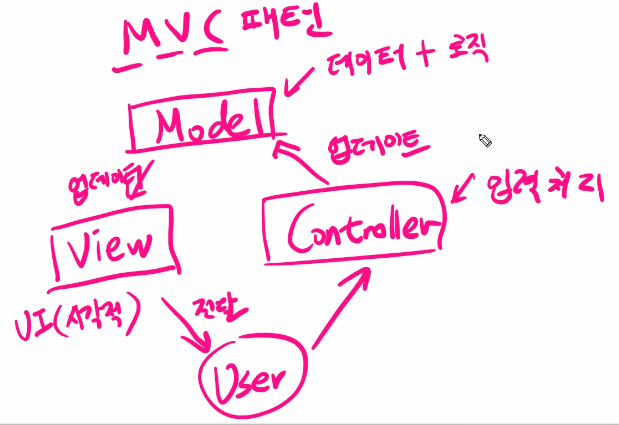 MVC 패턴
데이터 + 로직
Model
업데이트
업데이트
입력 처리
View
Controller
UI(시각적)
전달
User